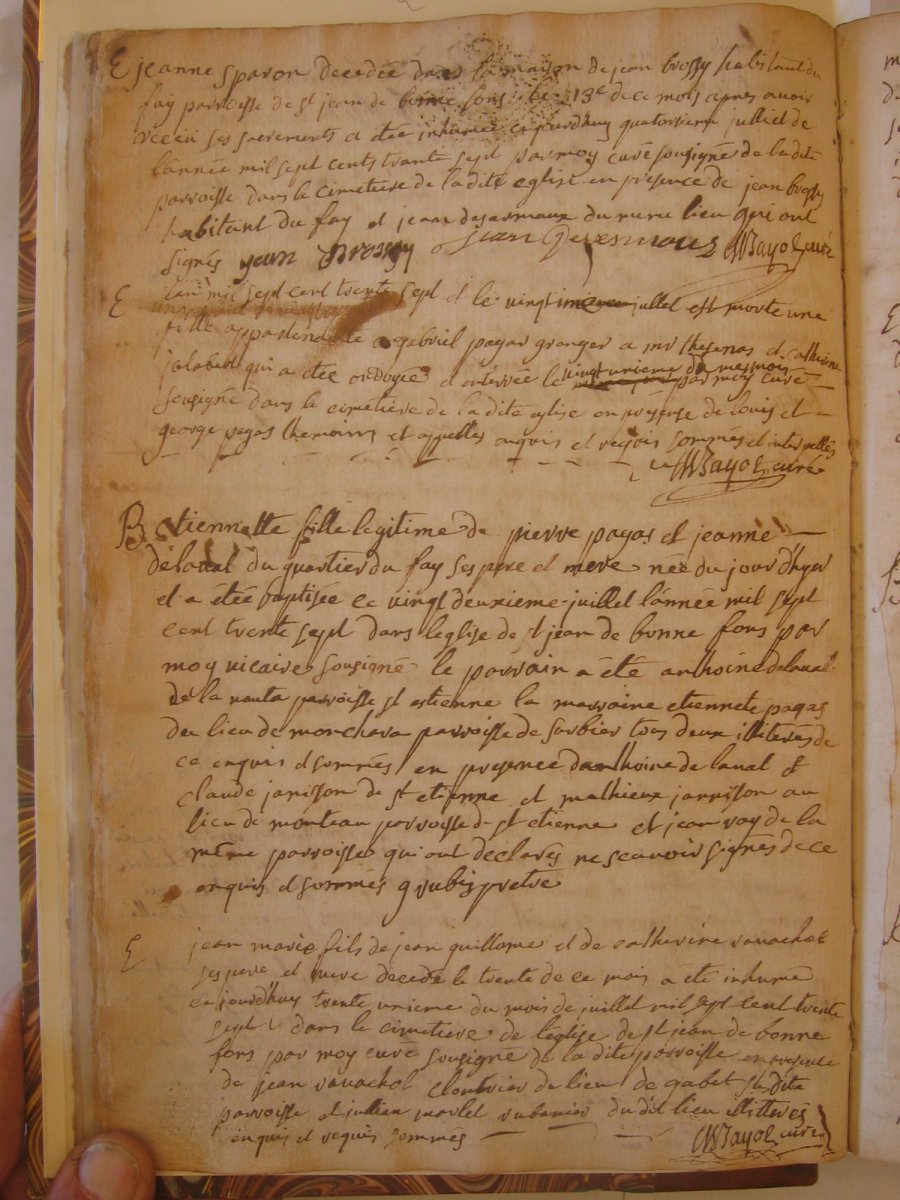 E jeanne sparon decedée dans la maison de jean brossy habitant du
fay parroisse de st jean de bonne fons le 13e de ce mois apres avoir
receu ses sacrements a été inhumée ce jourdhuy quatorsieme julliet de
lannée mil sept cents trante sept par moy curé sousigné de la dite
parroisse dans le cimetiere de la dite eglise en presence de jean brossy
habitant du fay et jean desermaux du lieu qui ont
signés jean Brossy jean Bayol curé
E lan mil sept cent trente sept et le vingt jullet est morte une
fille appartenante a gabriel pagas granger a mr thesenas et catherine
jalabert qui a étée ondoyée et enterrée le vingt unieme du mesmois par moy curé
sousigné dans le cimetiere de la dite eglise en presence de louis et
george pagas themoins et appellés enquis et requis sommés et interpellés
Bayol curé
B Etiennette fille legitime de pierre pagas et jeanne
delaval du quartier du fay ses pere et mere née du jour d'hyer
et a étée baptisée ce vingt deuxieme juillet lannée mil sept
cent trente sept dans leglise de st jean de bonne fons par
moy vicaire sousigné le parrain a été anthoine delaval
de la parroisse st estienne la marraine etiennete pagas
du lieu de parroisse de sorbier tous deux illiterés de
ce enquis et sommés en presence danthoine de laval et
claude janison de st etienne et mathieux jannison au
lieu de monteau parroisse de st etienne et jean roy de la
même parroisse qui ont declarés ne scavoir signés de ce
enquis et sommés pretre
E jean marie fils de jean guillome et de catherine ravachol
ses pere et mere decedé le trente de ce mois a été inhumé
ce jourdhuy trente unieme du mois de juillet mil sept cent trente
sept dans le cimetiere de leglise de st jean de bonne
fons par moy curé sousigné de la dite parroisse en presence
de jean ravachol cloutrier du lieu de gabet susdite
parroisse et jullien marlet rubanier du dit lieu illitterés
enquis et requis sommés Bayol curé